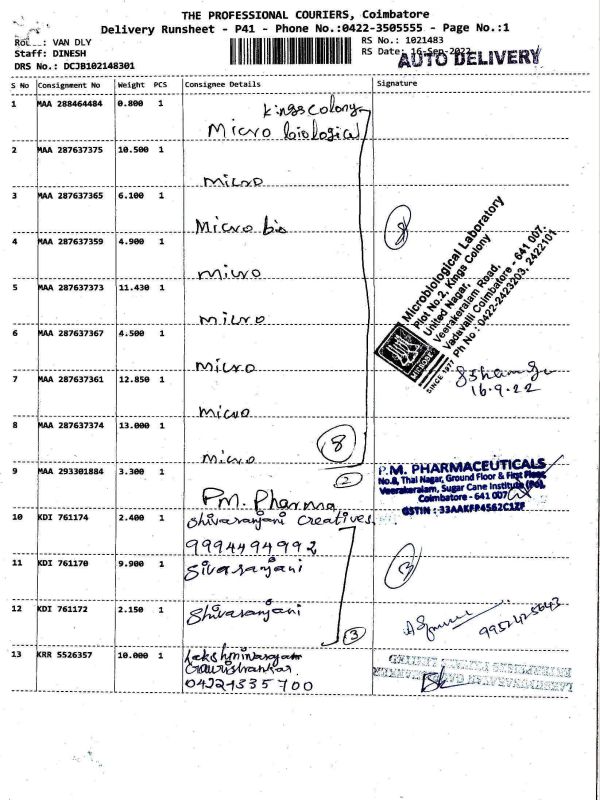 THE PROFESSIONAL COURIERS, Coimbatore
Delivery Runsheet - P41 - Phone No.:0422-3505555 - Page No.:1
VAN DLY
RS No.: 1021483
Staff: DINESH
RS Date: 16-Sep-2022
AUTO DELIVERY
DRS No.: DCJB102148301
S No Consignment No Weight PCS Consignee Details Signature
1 MAA 288464484 0.800 1 Kings colony
Micro biological
2 MAA 287637375 10.500 1
micro
3 MAA 287637365 6.100 1
Micro bio
8
4 MAA 287637359 4.900 1
micro
5 MAA 287637373 11.430 1
micro
6 MAA 287637367 4.500 1
micro
7 MAA 287637361 12.850 1
micro
8 MAA 287637374 13.000 1
micro
8
Microbiological Laboratory
Plot No.2, Kings Colony
United Nagar,
Veerakeralam Road,
Vadavalli Coimbatore - 641 007.
Ph No : 0422-2423203, 2422101
SINCE 1977
16.9.22
9 MAA 293301884 3.300 1
2
P.M. Pharma
P.M. PHARMACEUTICALS
No.8, Thai Nagar, Ground Floor & First Floor
Veerakeralam, Sugar Cane Institute (Po),
Coimbatore - 641 007
GSTIN : 33AAKFP4562C1ZF
10 KDI 761174 2.400 1 Shivaranjani Creatives
9994494992
11 KDI 761170 9.900 1 Sivaranjani
3
12 KDI 761172 2.150 1 Shivaranjani
3
9952425643
13 KRR 5526357 10.000 1 Lakshminarayan
Gourishankar
04224335700